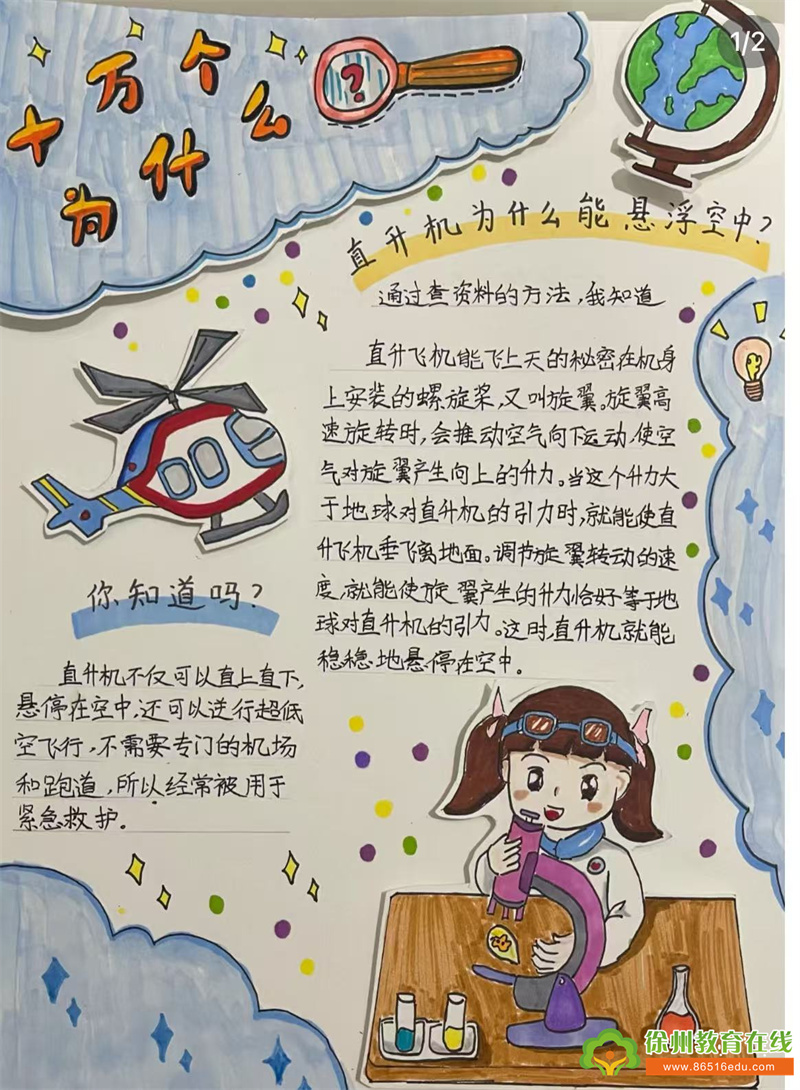 1/2
十万个
为什么
?
直升机为什么能悬浮空中?
通过查资料的方法,我知道
直升飞机能飞上天的秘密在机身
上安装的螺旋桨,又叫旋翼。旋翼高
速旋转时,会推动空气向下运动,使空
气对旋翼产生向上的升力。当这个升力大
于地球对直升机的引力时,就能使直
升飞机垂飞离地面。调节旋翼转动的速
度,就能使旋翼产生的升力恰好等于地
球对直升机的引力。这时,直升机就能
稳稳地悬停在空中。
你知道吗?
直升机不仅可以直上直下,
悬停在空中,还可以进行超低
空飞行,不需要专门的机场
和跑道,所以经常被用于
紧急救护。
徐州教育在线
www.86516edu.com